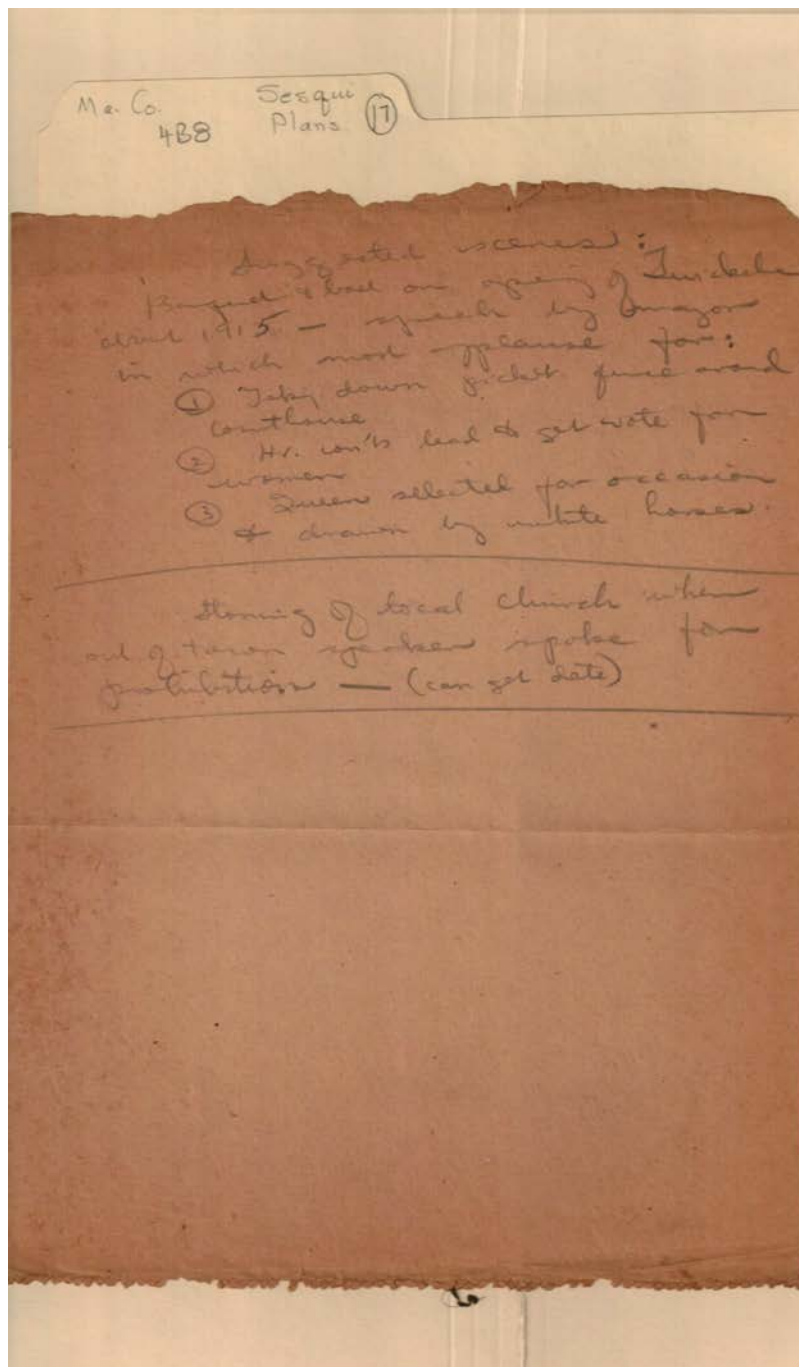 Ma. Co. Sesqui
4B8 Plans. 17
Suggested scenes:
Banquet & ball on opening of
about 1915 — speech by mayor
in which most applause for:
① Taking down picket fence around
Courthouse
② Hv. lead & get vote for
women
③ Queen selected for occasion
& drawn by white horses.
Storming of local church when
out of town speaker spoke for
prohibition — (can get date)